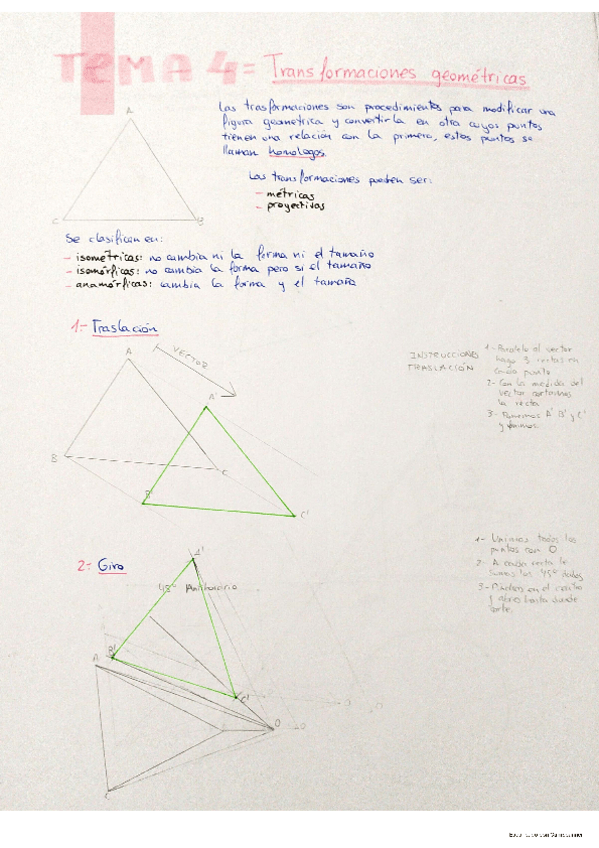 TEMA 4= Transformaciones geométricas
A
C
B
Las trasformaciones son procedimientos para modificar una
figura geometrica y convertirla en otra cuyos puntos
tienen una relación con la primera, estos puntos se
llaman homologos.
Las transformaciones pueden ser:
- métricas
- proyectivas
Se clasifican en:
- isométricas: no cambia ni la forma ni el tamaño
- isomórficas: no cambia la forma pero si el tamaño
- anamórficas: cambia la forma y el tamaño
1- Traslación
A
VECTOR
A'
B
C
B'
C'
INSTRUCCIONES
TRASLACIÓN
1- Paralelo al vector
hago 3 rectas en
cada punto
2- Con la medida del
vector cortamos
la recta
3- Ponemos A' B' y C'
y unimos.
2- Giro
A'
45° Antihorario
B'
A
C'
O
C
1- Unimos todos los
puntos con O
2- A cada recta le
45° dados
3- en el centro
y abro hasta donde
corte.